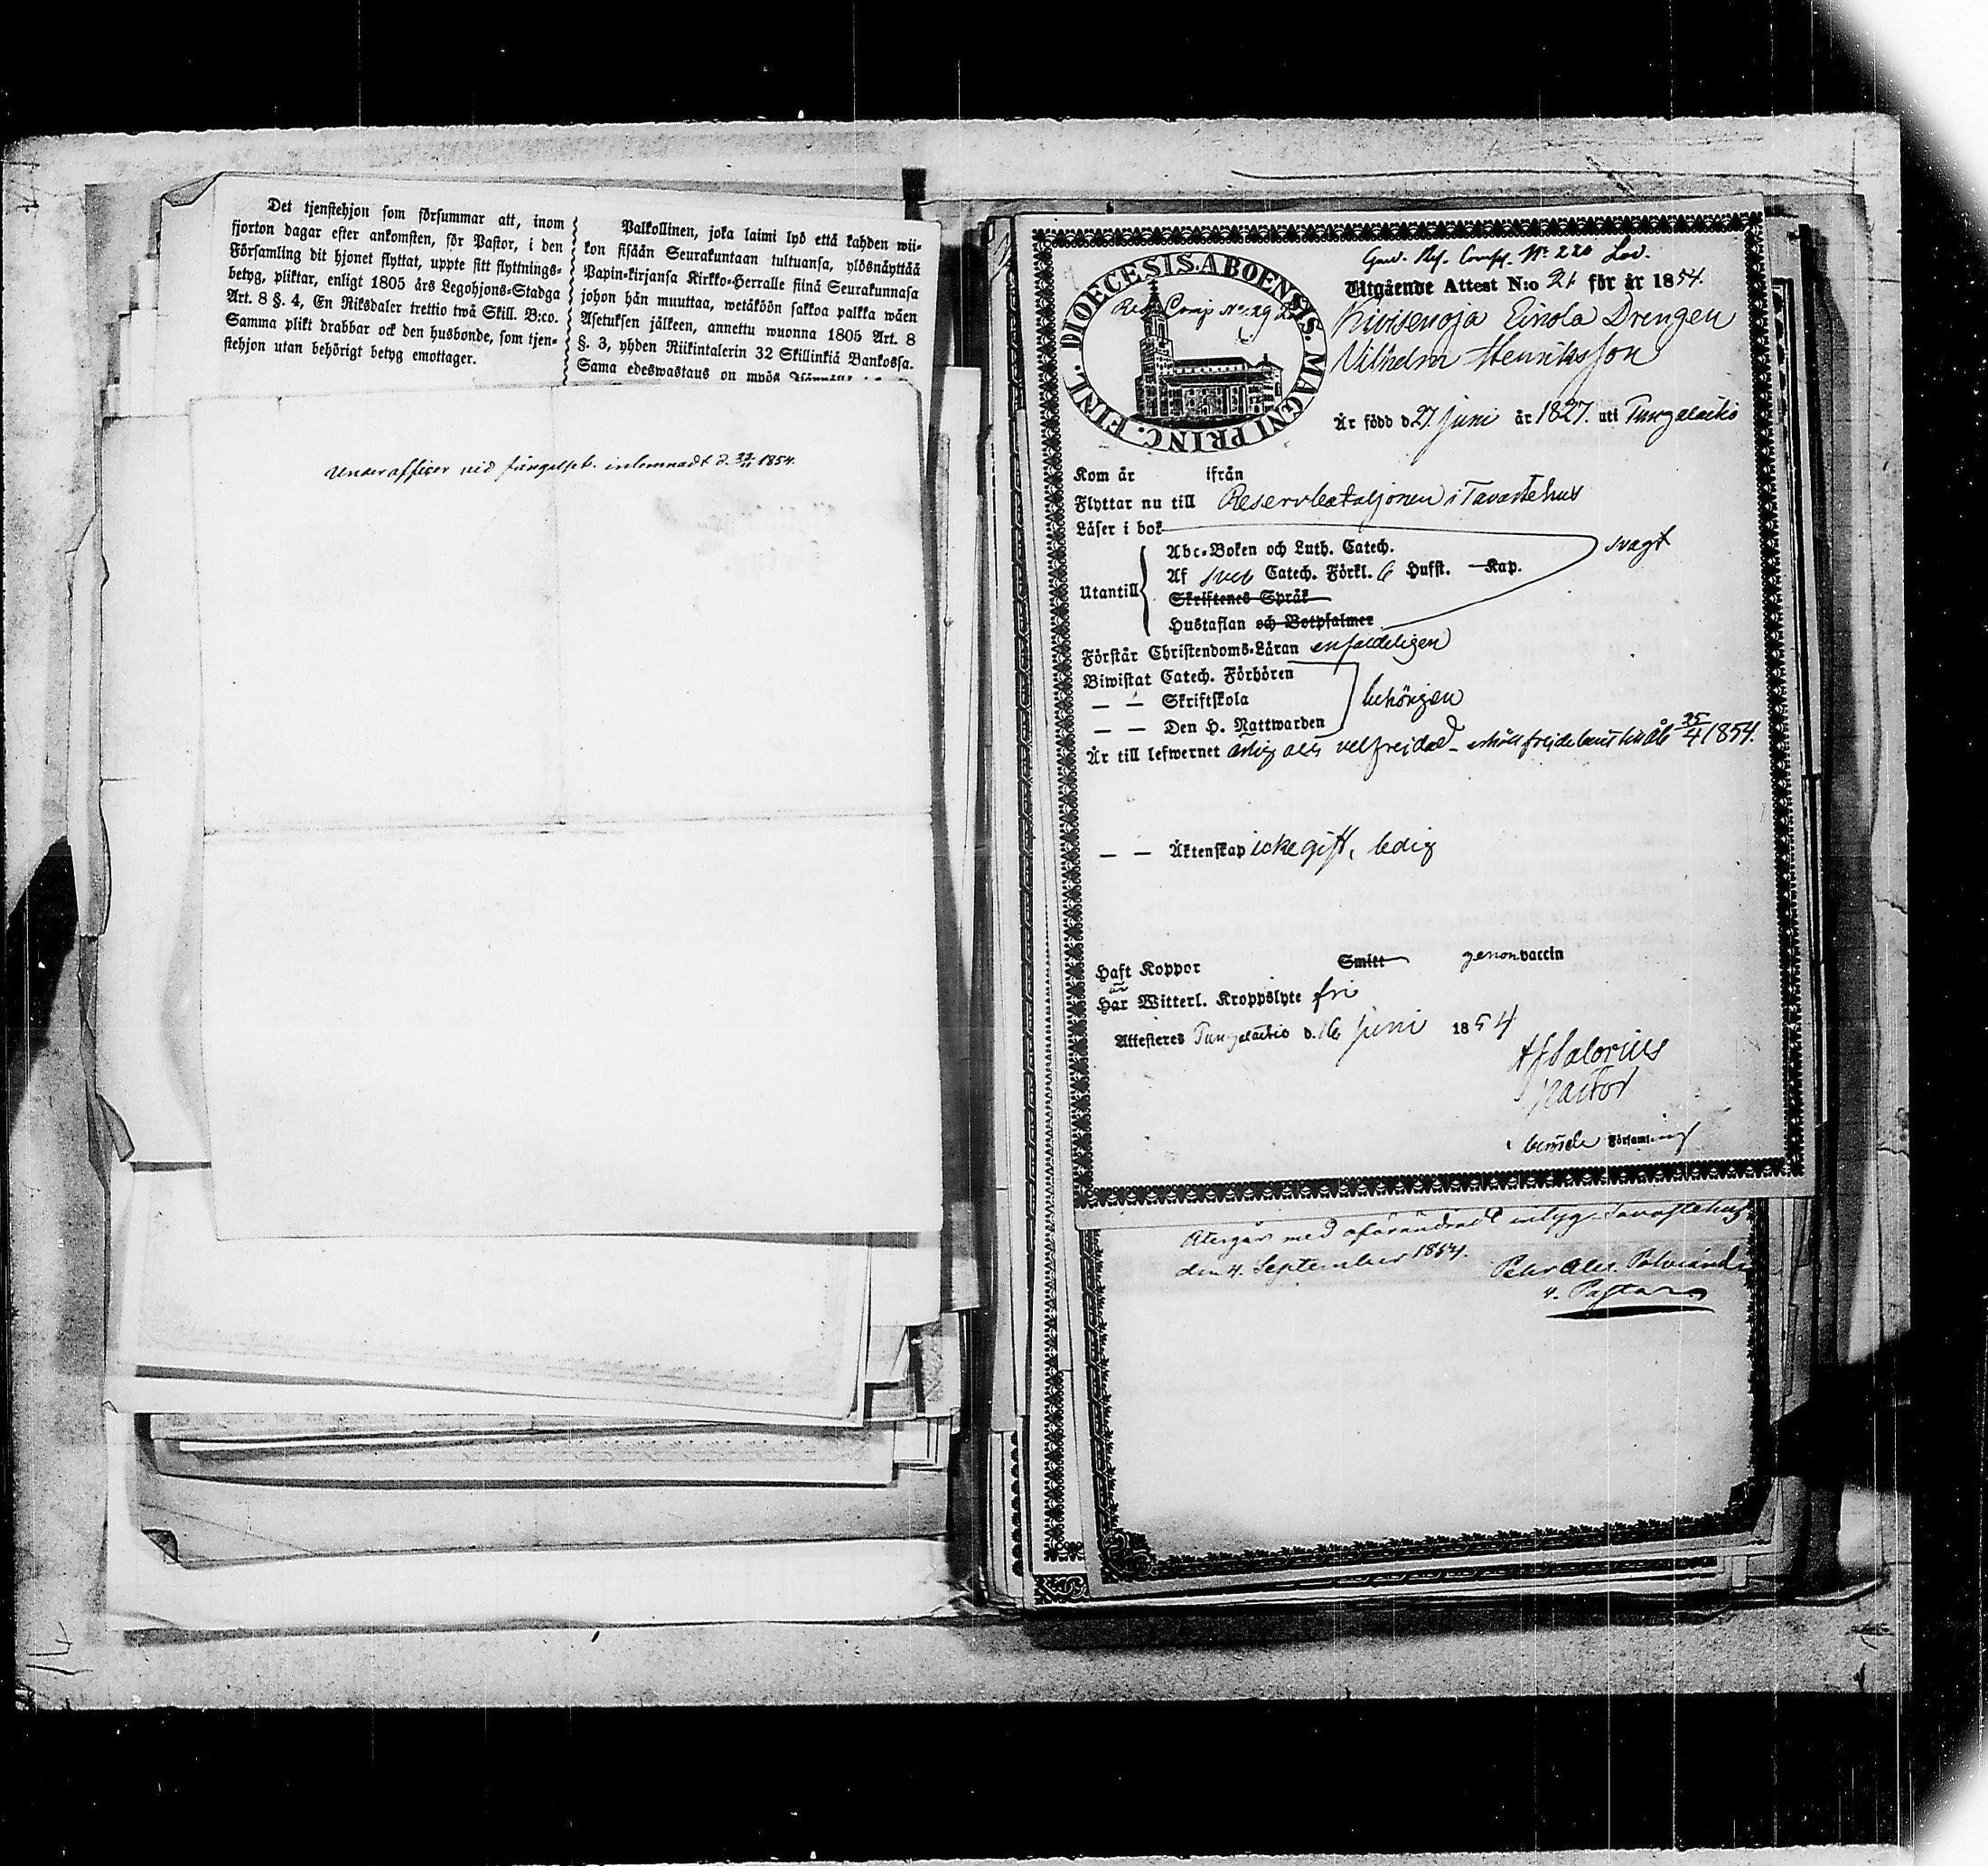 Det tjenstehjon som försummar att, inom
fjorton dagar efter ankomsten, för Pastor, i den
Församling dit hjonet flyttat, uppte sitt flyttnings-
betyg, pliktar, enligt 1805 års Legohjons-Stadga
Art. 8 §. 4, En Riksdaler trettio twå Skill. B:co.
Samma plikt drabbar ock den husbonde, som tjen-
stehjon utan behörigt betyg emottager.
Palkollinen, joka laimi lyö että kahden wii-
kon sisään Seurakuntaan tultuansa, ylösnäyttää
Papin-kirjansa Kirkko-Herralle siinä Seurakunnasa
johon hän muuttaa, wetäköön sakkoa palkka wäen
Asetuksen jälkeen, annettu wuonna 1805 Art. 8
§. 3, yhden Riikintalerin 32 Skillinkiä Bankossa.
Sama edeswastaus on myös
Underofficer vid fängelset. inlemnadt d. 1854.
Comp. No 220
Utgående Attest N:o 21 för år 1854.
DIOECESIS. ABOENSIS. MAGNI PRINC. FINL.
Comp No 29
Einola Drengen
Vilhelm Henriksson
Är född d. 27 Juni år 1827. uti Pungalaitio
Kom år ifrån
Flyttar nu till Reservbataljonen i Tavastehus
Läser i bok
svagt
Utantill
Abc-Boken och Luth. Catech.
Af Sveb Catech. Förkl. 6 Hufst. Kap.
Skriftenes Språk
Hustaflan och Botpsalmer
Förstår Christendoms-Läran enfaldeligen
Biwistat Catech. Förhören
— — Skriftskola behörigen
— — Den H. Nattwarden
Är till lefwernet ärlig och velfrejdad - erhöll 25/4 1854.
— — Äktenskap icke gift, ledig
Haft Koppor Smitt genom vaccin
är
Har Witterl. Kroppslyte fri
Attesteras Pungalaitio d. 16 Juni 1854
Salorius
Pastor
Församling
Återgår med oförändradt intyg. Tavastehus
den 4. September 1854.
v. Pastor